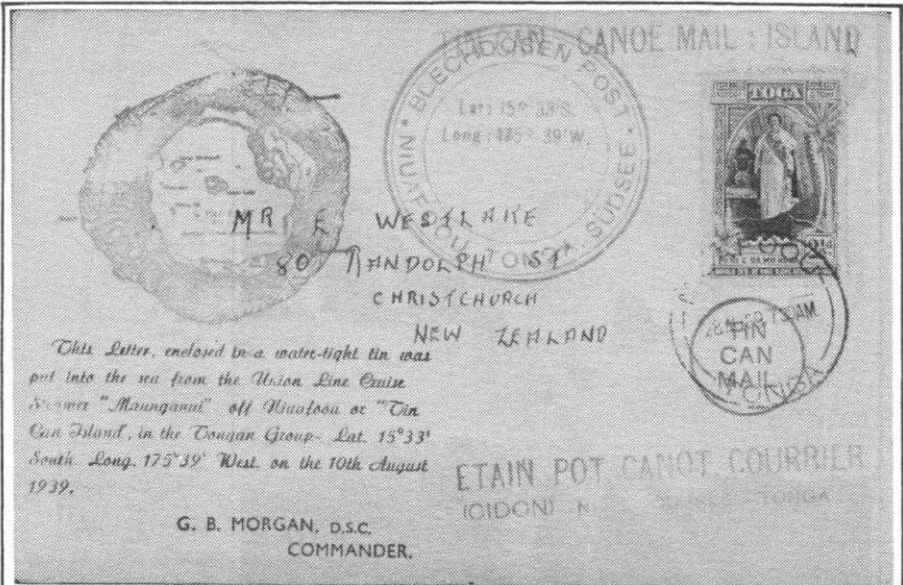 TIN CAN CANOE MAIL : ISLAND
BLECHDOSEN POST · SÜDSEE · NIUAFOOU TONGA
Lat: 15° 33'S.
Long: 175° 39'W.
TOGA
MR E WESTLAKE
80 RANDOLPH ST
CHRISTCHURCH
NEW ZEALAND
7 30AM
TIN
CAN
MAIL
TONGA
This Letter, enclosed in a water-tight tin was
put into the sea from the Union Line Cruise
Steamer "Maunganui" off Niuafoou or "Tin
Can Island', in the Tongan Group- Lat. 15°33'
South. Long. 175°39' West. on the 10th August
1939.
G. B. MORGAN, D.S.C.
COMMANDER.
ETAIN POT CANOT COURRIER
TONGA